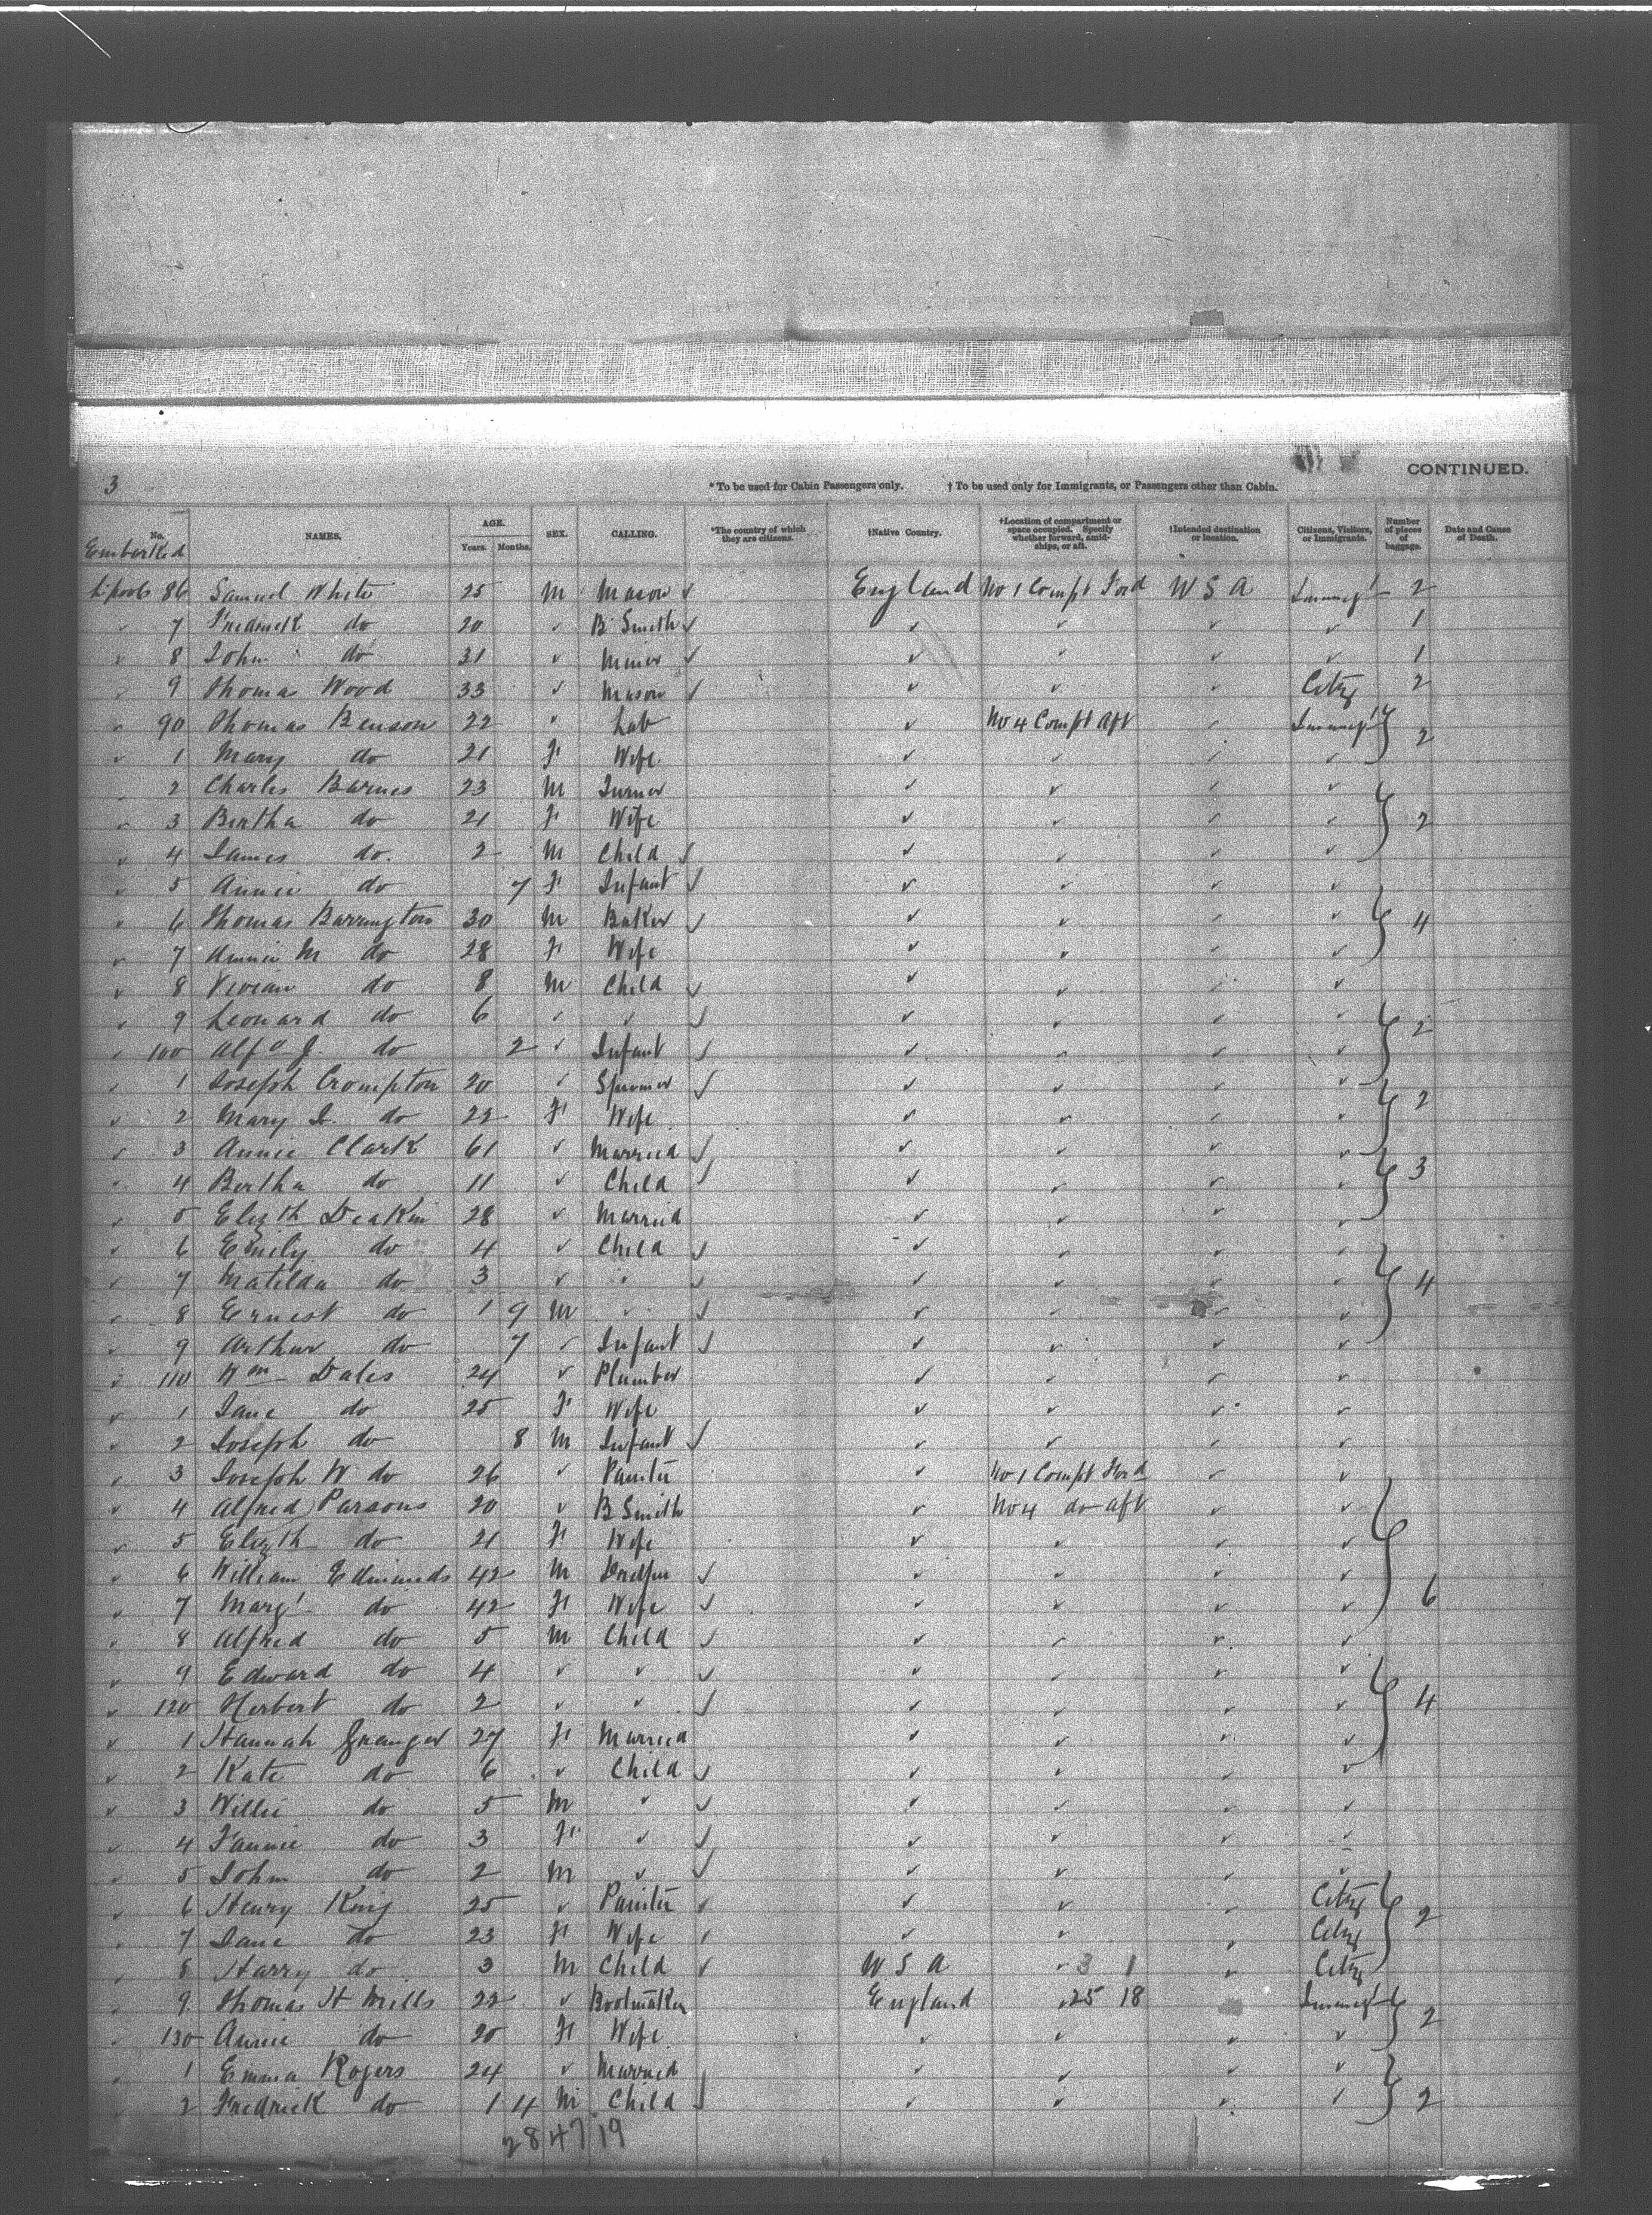 CONTINUED.
3 * To be used for Cabin Passengers only. † To be used only for Immigrants, or Passengers other than Cabin.
No. NAMES. AGE. Years. Months. SEX. CALLING. *The country of which they are citizens. †Native Country. †Location of compartment or space occupied. Specify whether forward, amidships, or aft. †Intended destination or location. Citizens, Visitors, or Immigrants. Number of pieces of baggage. Date and Cause of Death.
Embarked
L'pool 86 Samuel White 25 M Mason ✓ England No 1 Compt Ford U S A Immigt 2
✓ 7 Fredrick do 20 ✓ B Smith ✓ ✓ ✓ ✓ ✓ 1
✓ 8 John do 31 ✓ Miner ✓ ✓ ✓ ✓ ✓ 1
✓ 9 Thomas Wood 33 ✓ Mason ✓ ✓ ✓ ✓ Citz 2
✓ 90 Thomas Benson 22 ✓ Lab ✓ No 4 Compt Aft ✓ Immigt 2
✓ 1 Mary do 21 F Wife ✓ ✓ ✓ ✓
✓ 2 Charles Barnes 23 M Turner ✓ ✓ ✓ ✓
✓ 3 Bertha do 21 F Wife ✓ ✓ ✓ ✓ 2
✓ 4 James do 2 M Child ✓ ✓ ✓ ✓ ✓
✓ 5 Annie do 7 F Infant ✓ ✓ ✓ ✓ ✓
✓ 6 Thomas Barrington 30 M Baker ✓ ✓ ✓ ✓ ✓ 4
✓ 7 Annie M do 28 F Wife ✓ ✓ ✓ ✓
✓ 8 Vivian do 8 M Child ✓ ✓ ✓ ✓ ✓
✓ 9 Leonard do 6 ✓ ✓ ✓ ✓ ✓ ✓ ✓ 2
✓ 100 Alfd J. do 2 ✓ Infant ✓ ✓ ✓ ✓ ✓
✓ 1 Joseph Crompton 20 ✓ Spinner ✓ ✓ ✓ ✓ ✓
✓ 2 Mary do 22 F Wife ✓ ✓ ✓ ✓ 2
✓ 3 Annie Clark 61 ✓ Married ✓ ✓ ✓ ✓ ✓
✓ 4 Bertha do 11 ✓ Child ✓ ✓ ✓ ✓ ✓ 3
✓ 5 Elizth Deakin 28 ✓ Married ✓ ✓ ✓ ✓
✓ 6 Emily do 4 ✓ Child ✓ ✓ ✓ ✓ ✓
✓ 7 Matilda do 3 ✓ ✓ ✓ ✓ ✓ ✓ ✓ 4
✓ 8 Ernest do 1 9 M ✓ ✓ ✓ ✓ ✓ ✓
✓ 9 Arthur do 7 ✓ Infant ✓ ✓ ✓ ✓ ✓
✓ 110 Wm Dales 24 ✓ Plumber ✓ ✓ ✓ ✓
✓ 1 Jane do 25 F Wife ✓ ✓ ✓ ✓
✓ 2 Joseph do 8 M Infant ✓ ✓ ✓ ✓ ✓
✓ 3 Joseph W do 26 ✓ Painter ✓ No 1 Compt Ford ✓ ✓
✓ 4 Alfred Parsons 20 ✓ B Smith ✓ No 4 do aft ✓ ✓
✓ 5 Elizth do 21 F Wife ✓ ✓ ✓ ✓
✓ 6 William Edmunds 42 M ✓ ✓ ✓ ✓ ✓
✓ 7 Margt do 42 F Wife ✓ ✓ ✓ ✓ ✓ 6
✓ 8 Alfred do 5 M Child ✓ ✓ ✓ ✓ ✓
✓ 9 Edward do 4 ✓ ✓ ✓ ✓ ✓ ✓ ✓
✓ 120 Herbert do 2 ✓ ✓ ✓ ✓ ✓ ✓ ✓ 4
✓ 1 Hannah Granger 27 F Married ✓ ✓ ✓ ✓
✓ 2 Kate do 6 ✓ Child ✓ ✓ ✓ ✓ ✓
✓ 3 Willie do 5 M ✓ ✓ ✓ ✓ ✓ ✓
✓ 4 Fannie do 3 F ✓ ✓ ✓ ✓ ✓ ✓
✓ 5 John do 2 M ✓ ✓ ✓ ✓ ✓ ✓
✓ 6 Henry King 25 ✓ Painter ✓ ✓ ✓ ✓ Citz 2
✓ 7 Jane do 23 F Wife ✓ ✓ ✓ ✓ Citz
✓ 8 Harry do 3 M Child ✓ U S A ✓ 3 1 ✓ Citz
✓ 9 Thomas H Mills 22 ✓ Bootmaker England ✓ 25 18 Immigt 2
✓ 130 Annie do 20 F Wife ✓ ✓ ✓ ✓
✓ 1 Emma Rogers 24 ✓ Married ✓ ✓ ✓ ✓
✓ 2 Fredrick do 1 4 M Child ✓ ✓ ✓ ✓ ✓ 2
28 47 19